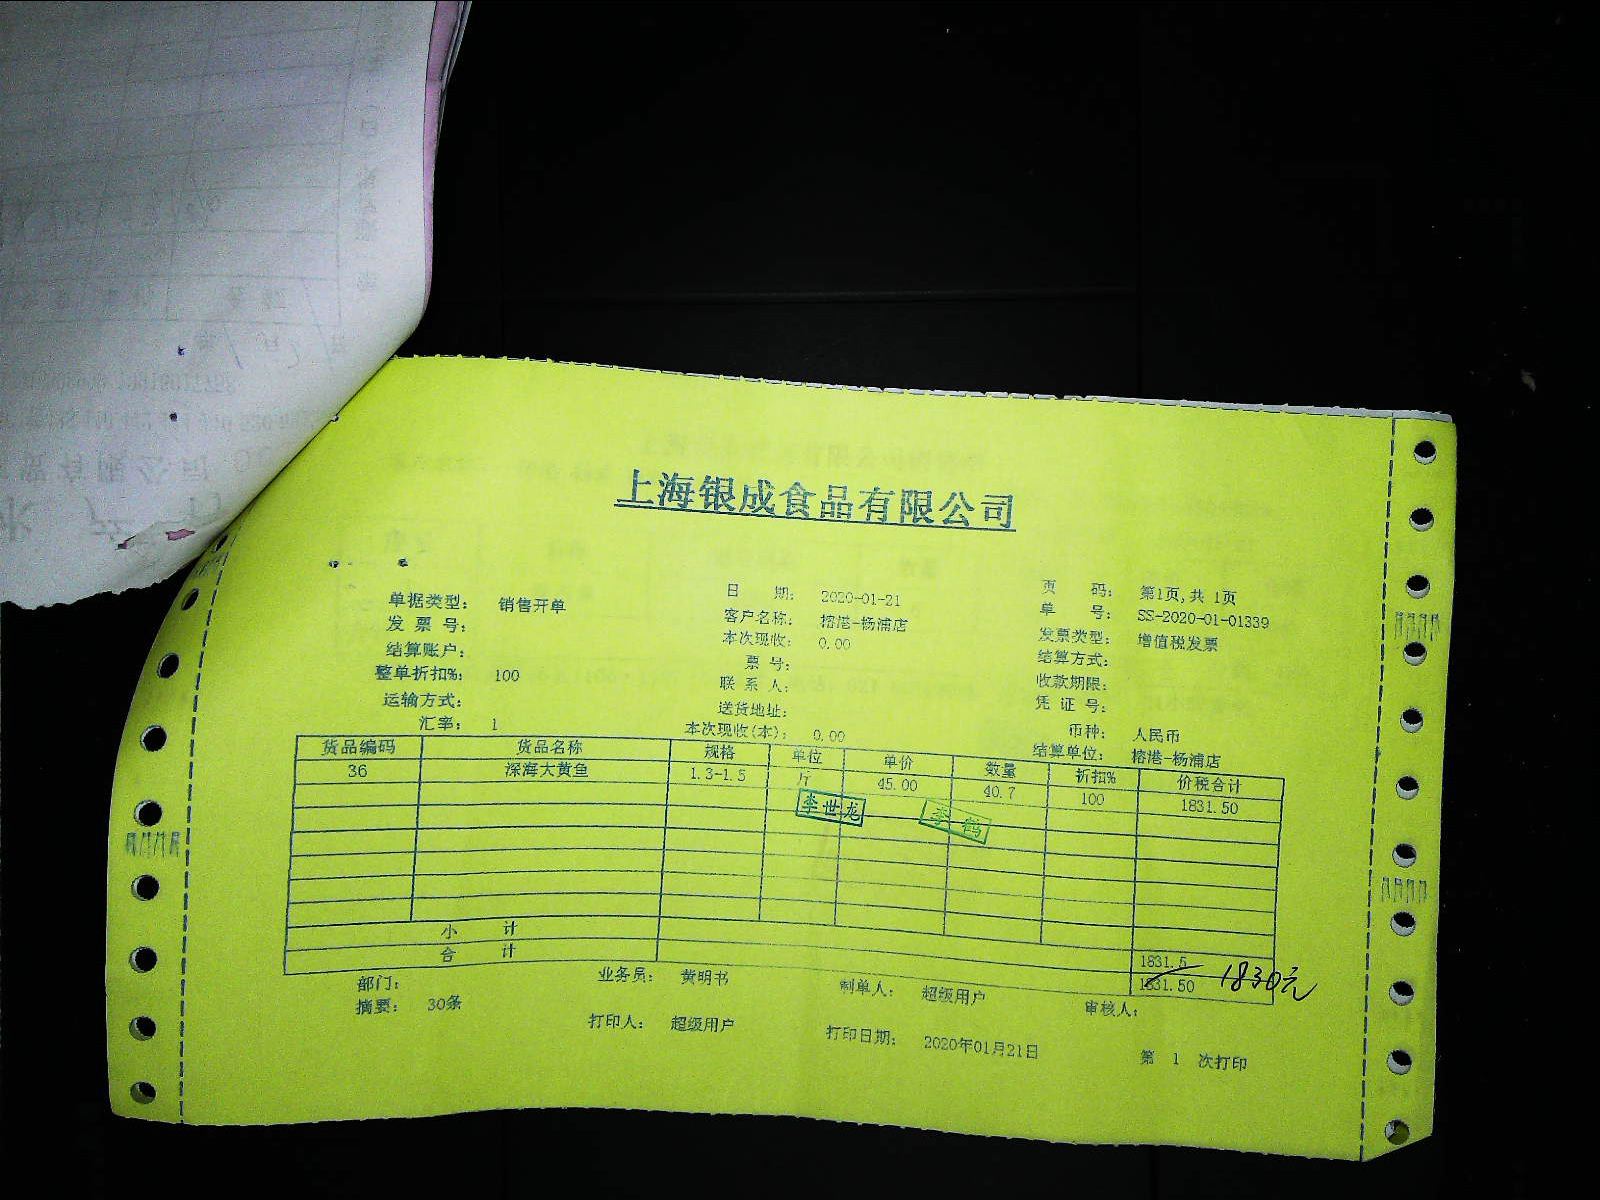 上海银成食品有限公司
单据类型: 销售开单 日 期: 2020-01-21 页 码: 第1页,共 1页
发 票 号: 客户名称: 榕港-杨浦店 单 号: SS-2020-01-01339
结算账户: 本次现收: 0.00 发票类型: 增值税发票
整单折扣%: 100 票 号: 结算方式:
运输方式: 联 系 人: 收款期限:
汇率: 1 送货地址: 凭 证 号:
本次现收(本): 0.00 币种: 人民币
结算单位: 榕港-杨浦店
货品编码 货品名称 规格 单位 单价 数量 折扣% 价税合计
36 深海大黄鱼 1.3-1.5 斤 45.00 40.7 100 1831.50
李世龙 李 鹤
小 计 1831.5
合 计 1831.50 1830元
部门: 业务员: 黄明书 制单人: 超级用户 审核人:
摘要: 30条 打印人: 超级用户 打印日期: 2020年01月21日 第 1 次打印